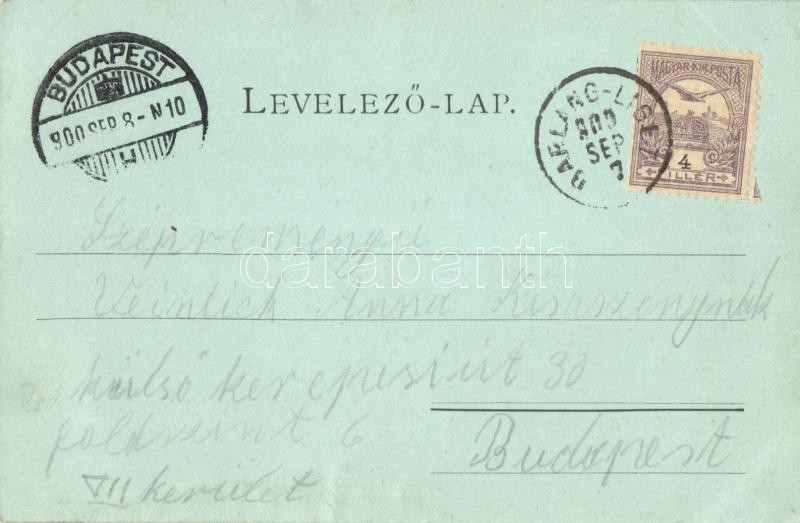 BUDAPEST
900 SEP. 8 - N10
LEVELEZŐ-LAP.
BARLANG-LIGET
900
SEP
MAGYAR·KIR·POSTA
4
FILLÉR
Szépreményű
Veinlich Anna Kisaszonynak
külső kerepesi út 30
földszint 6
Budapest
VII kerület
darabanth